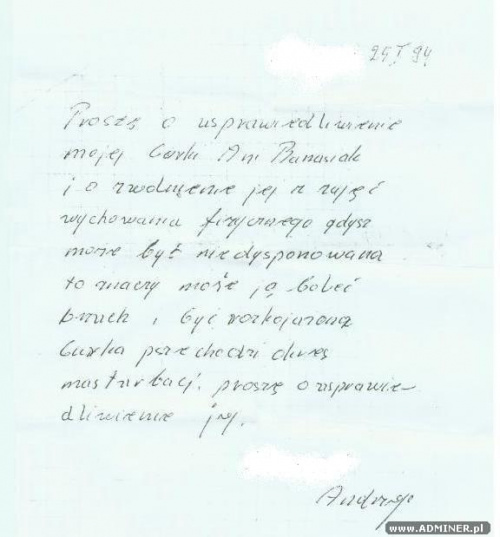 25 I 94
Proszę o usprawiedliwienie
mojej Curki Ani Banasiak
i o zwolnienie jej z zajęć
wychowania fizycznego gdysz
może być niedysponowana
to znaczy może ją boleć
bzuch i być rozkojarzona
Curka przechodzi okres
masturbacji. proszę o usprawie-
dliwienie jej.
Andrzej
www.ADMINER.pl